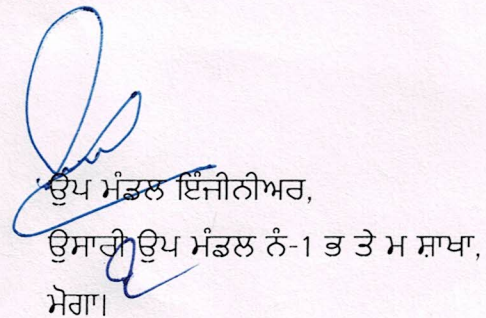 ਉਪ ਮੰਡਲ ਇੰਜੀਨੀਅਰ,
ਉਸਾਰੀ ਉਪ ਮੰਡਲ ਨੰ-1 ਭ ਤੇ ਮ ਸ਼ਾਖਾ,
ਮੋਗਾ।